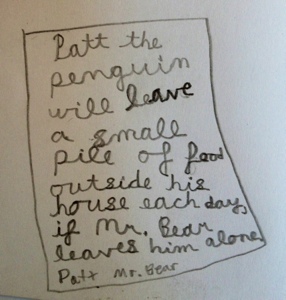 Patt the
penguin
will leave
a small
pile of food
outside his
house each day,
if Mr. Bear
leaves him alone
Patt Mr. Bear